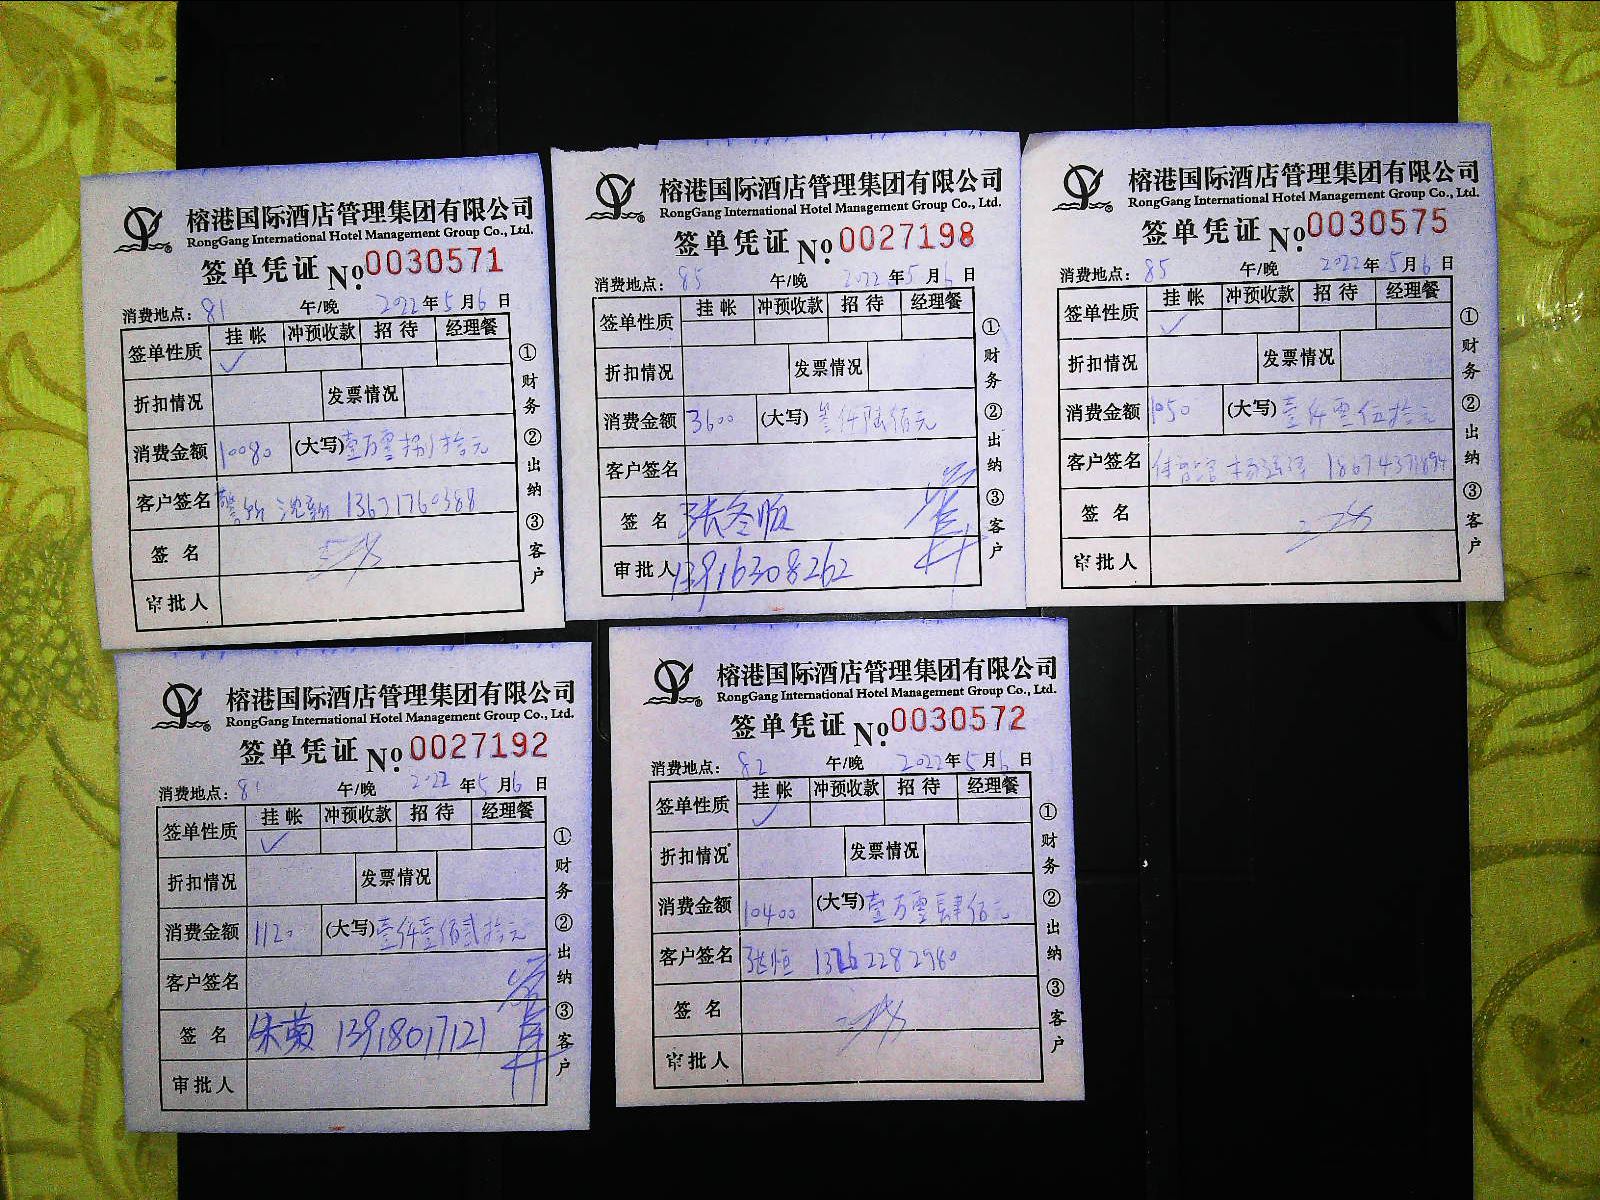 榕港国际酒店管理集团有限公司
RongGang International Hotel Management Group Co., Ltd.
签单凭证 No.0030571
消费地点: 81 午/晚 2022年5月6日
签单性质 挂帐 冲预收款 招待 经理餐
✓
折扣情况 发票情况
消费金额 10080 (大写) 壹万零捌拾元
客户签名 沈 13671760388
签名
审批人
①财务 ②出纳 ③客户
榕港国际酒店管理集团有限公司
RongGang International Hotel Management Group Co., Ltd.
签单凭证 No.0027198
消费地点: 85 午/晚 2022年5月6日
签单性质 挂帐 冲预收款 招待 经理餐
折扣情况 发票情况
消费金额 3600 (大写) 叁仟陆佰元
客户签名
签名 张冬顺
审批人 13916308262
①财务 ②出纳 ③客户
榕港国际酒店管理集团有限公司
RongGang International Hotel Management Group Co., Ltd.
签单凭证 No.0030575
消费地点: 85 午/晚 2022年5月6日
签单性质 挂帐 冲预收款 招待 经理餐
✓
折扣情况 发票情况
消费金额 1050 (大写) 壹仟零伍拾元
客户签名
签名
审批人
①财务 ②出纳 ③客户
榕港国际酒店管理集团有限公司
RongGang International Hotel Management Group Co., Ltd.
签单凭证 No.0027192
消费地点: 81 午/晚 2022年5月6日
签单性质 挂帐 冲预收款 招待 经理餐
✓
折扣情况 发票情况
消费金额 1120 (大写) 壹仟壹佰贰拾元
客户签名
签名 朱菊 13918017121
审批人
①财务 ②出纳 ③客户
榕港国际酒店管理集团有限公司
RongGang International Hotel Management Group Co., Ltd.
签单凭证 No.0030572
消费地点: 82 午/晚 2022年5月6日
签单性质 挂帐 冲预收款 招待 经理餐
✓
折扣情况 发票情况
消费金额 10400 (大写) 壹万零肆佰元
客户签名 张恒 13262282980
签名
审批人
①财务 ②出纳 ③客户